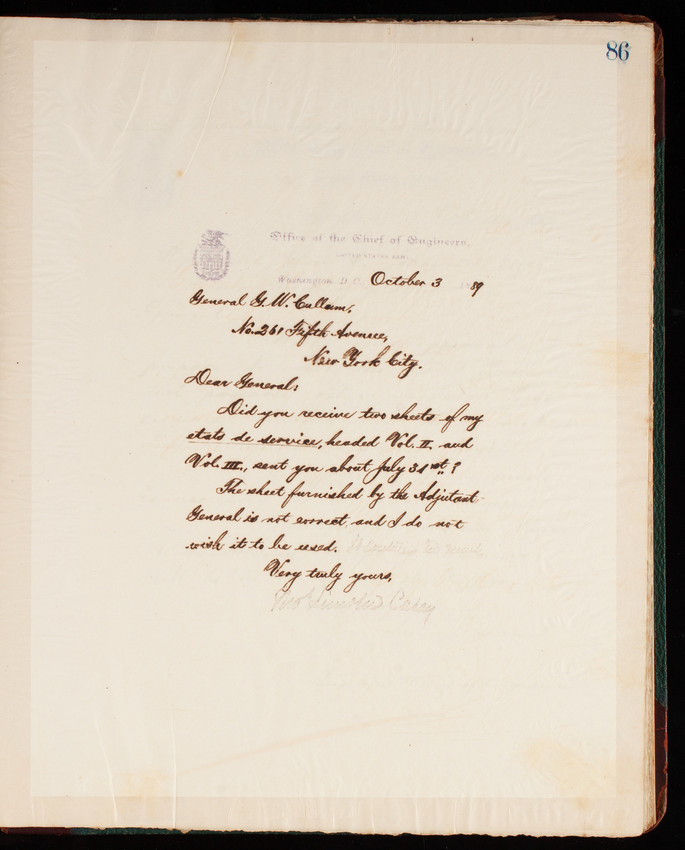 86
Office of the Chief of Engineers,
UNITED STATES ARMY,
Washington, D. C. October 3 1889
General G. W. Cullum,
No. 261 Fifth Avenue,
New York City.
Dear General:
Did you receive two sheets of my
etats de service, headed Vol. II. and
Vol. III., sent you about July 31st.?
The sheet furnished by the Adjutant-
General is not correct and I do not
wish it to be used.
Very truly yours,
Thos Lincoln Casey